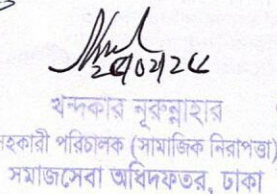 খন্দকার নূরুন্নাহার
হকারী পরিচালক (সামাজিক নিরাপত্তা)
সমাজসেবা অধিদফতর, ঢাকা